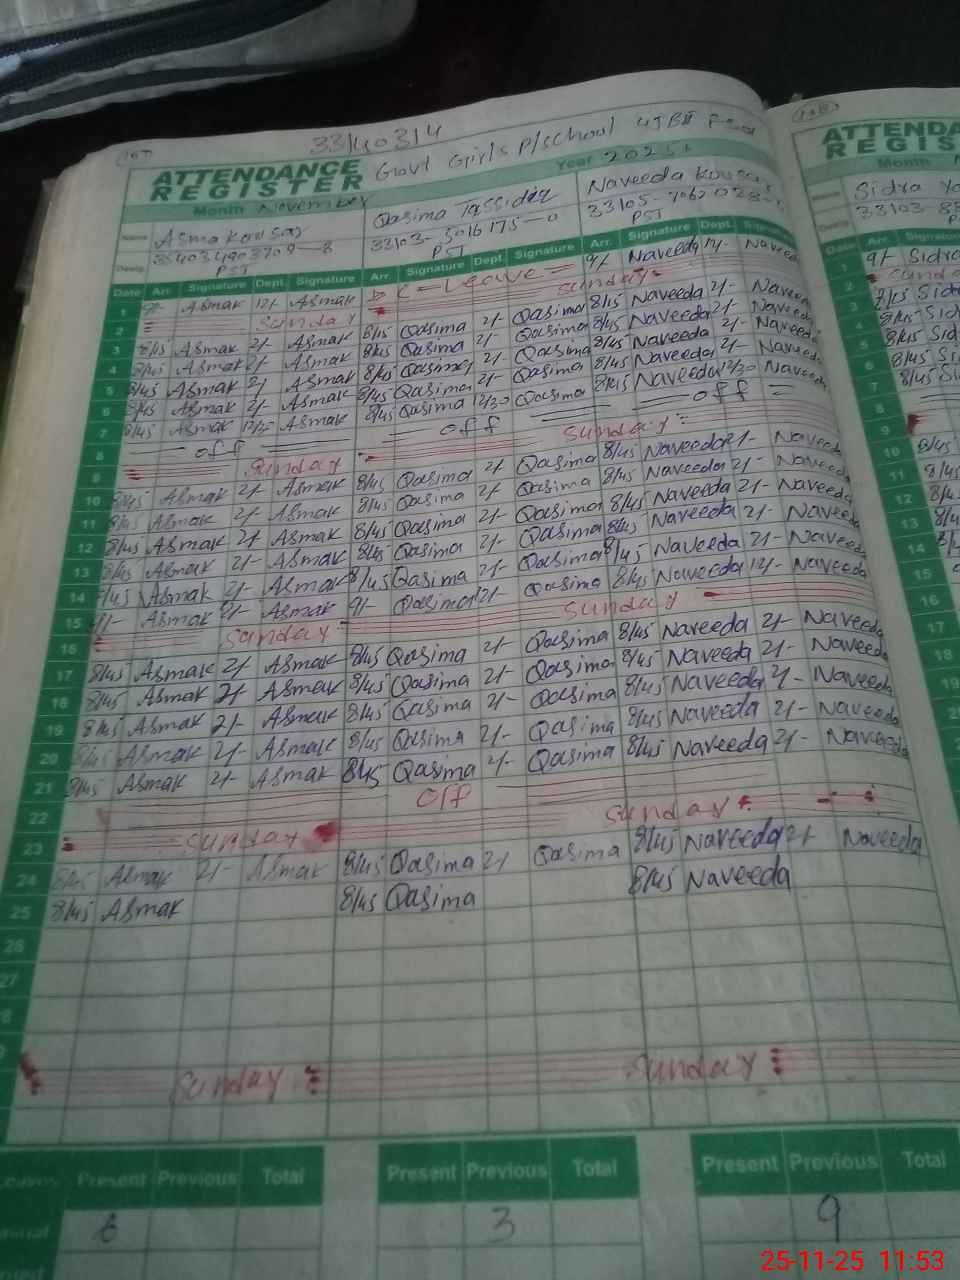 33140314
ATTENDANCE Govt Girls P/school
REGISTER Year 2025
Month November
Name Asma Kousar Qasima Tassidaq Naveeda Kousar Sidra
PST PST PST
Date Arr. Signature Dept. Signature Arr. Signature Dept. Signature Arr. Signature Dept. Signature
1 9/- Asmak 12/- Asmak Leave 9/- Naveeda 12/- Naveeda
2 Sunday Sunday
3 8/45 Asmak 2/- Asmak 8/45 Qasima 2/- Qasima 8/45 Naveeda 2/- Naveeda
4 8/45 Asmak 2/- Asmak 8/45 Qasima 2/- Qasima 8/45 Naveeda 2/- Naveeda
5 8/45 Asmak 2/- Asmak 8/45 Qasima 2/- Qasima 8/45 Naveeda 2/- Naveeda
6 8/45 Asmak 2/- Asmak 8/45 Qasima 2/- Qasima 8/45 Naveeda 2/- Naveeda
7 8/45 Asmak 12/30 Asmak 8/45 Qasima 12/30 Qasima 8/45 Naveeda 12/30 Naveeda
8 off off off
9 Sunday Sunday
10 8/45 Asmak 2/- Asmak 8/45 Qasima 2/- Qasima 8/45 Naveeda 2/- Naveeda
11 8/45 Asmak 2/- Asmak 8/45 Qasima 2/- Qasima 8/45 Naveeda 2/- Naveeda
12 8/45 Asmak 2/- Asmak 8/45 Qasima 2/- Qasima 8/45 Naveeda 2/- Naveeda
13 8/45 Asmak 2/- Asmak 8/45 Qasima 2/- Qasima 8/45 Naveeda 2/- Naveeda
14 8/45 Asmak 2/- Asmak 8/45 Qasima 2/- Qasima 8/45 Naveeda 2/- Naveeda
15 9/- Asmak Asmak 9/- Qasima 12/- Qasima 8/45 Naveeda 12/- Naveeda
16 Sunday Sunday
17 8/45 Asmak 2/- Asmak 8/45 Qasima 2/- Qasima 8/45 Naveeda 2/- Naveeda
18 8/45 Asmak 2/- Asmak 8/45 Qasima 2/- Qasima 8/45 Naveeda 2/- Naveeda
19 8/45 Asmak 2/- Asmak 8/45 Qasima 2/- Qasima 8/45 Naveeda 2/- Naveeda
20 8/45 Asmak 2/- Asmak 8/45 Qasima 2/- Qasima 8/45 Naveeda 2/- Naveeda
21 8/45 Asmak 2/- Asmak 8/45 Qasima 2/- Qasima 8/45 Naveeda 2/- Naveeda
22 off
23 Sunday Sunday
24 8/45 Asmak 2/- Asmak 8/45 Qasima 2/- Qasima 8/45 Naveeda 2/- Naveeda
25 8/45 Asmak 8/45 Qasima 8/45 Naveeda
26
27
Sunday Sunday
Leaves Present Previous Total Present Previous Total Present Previous Total
6 3 9
25-11-25 11:53